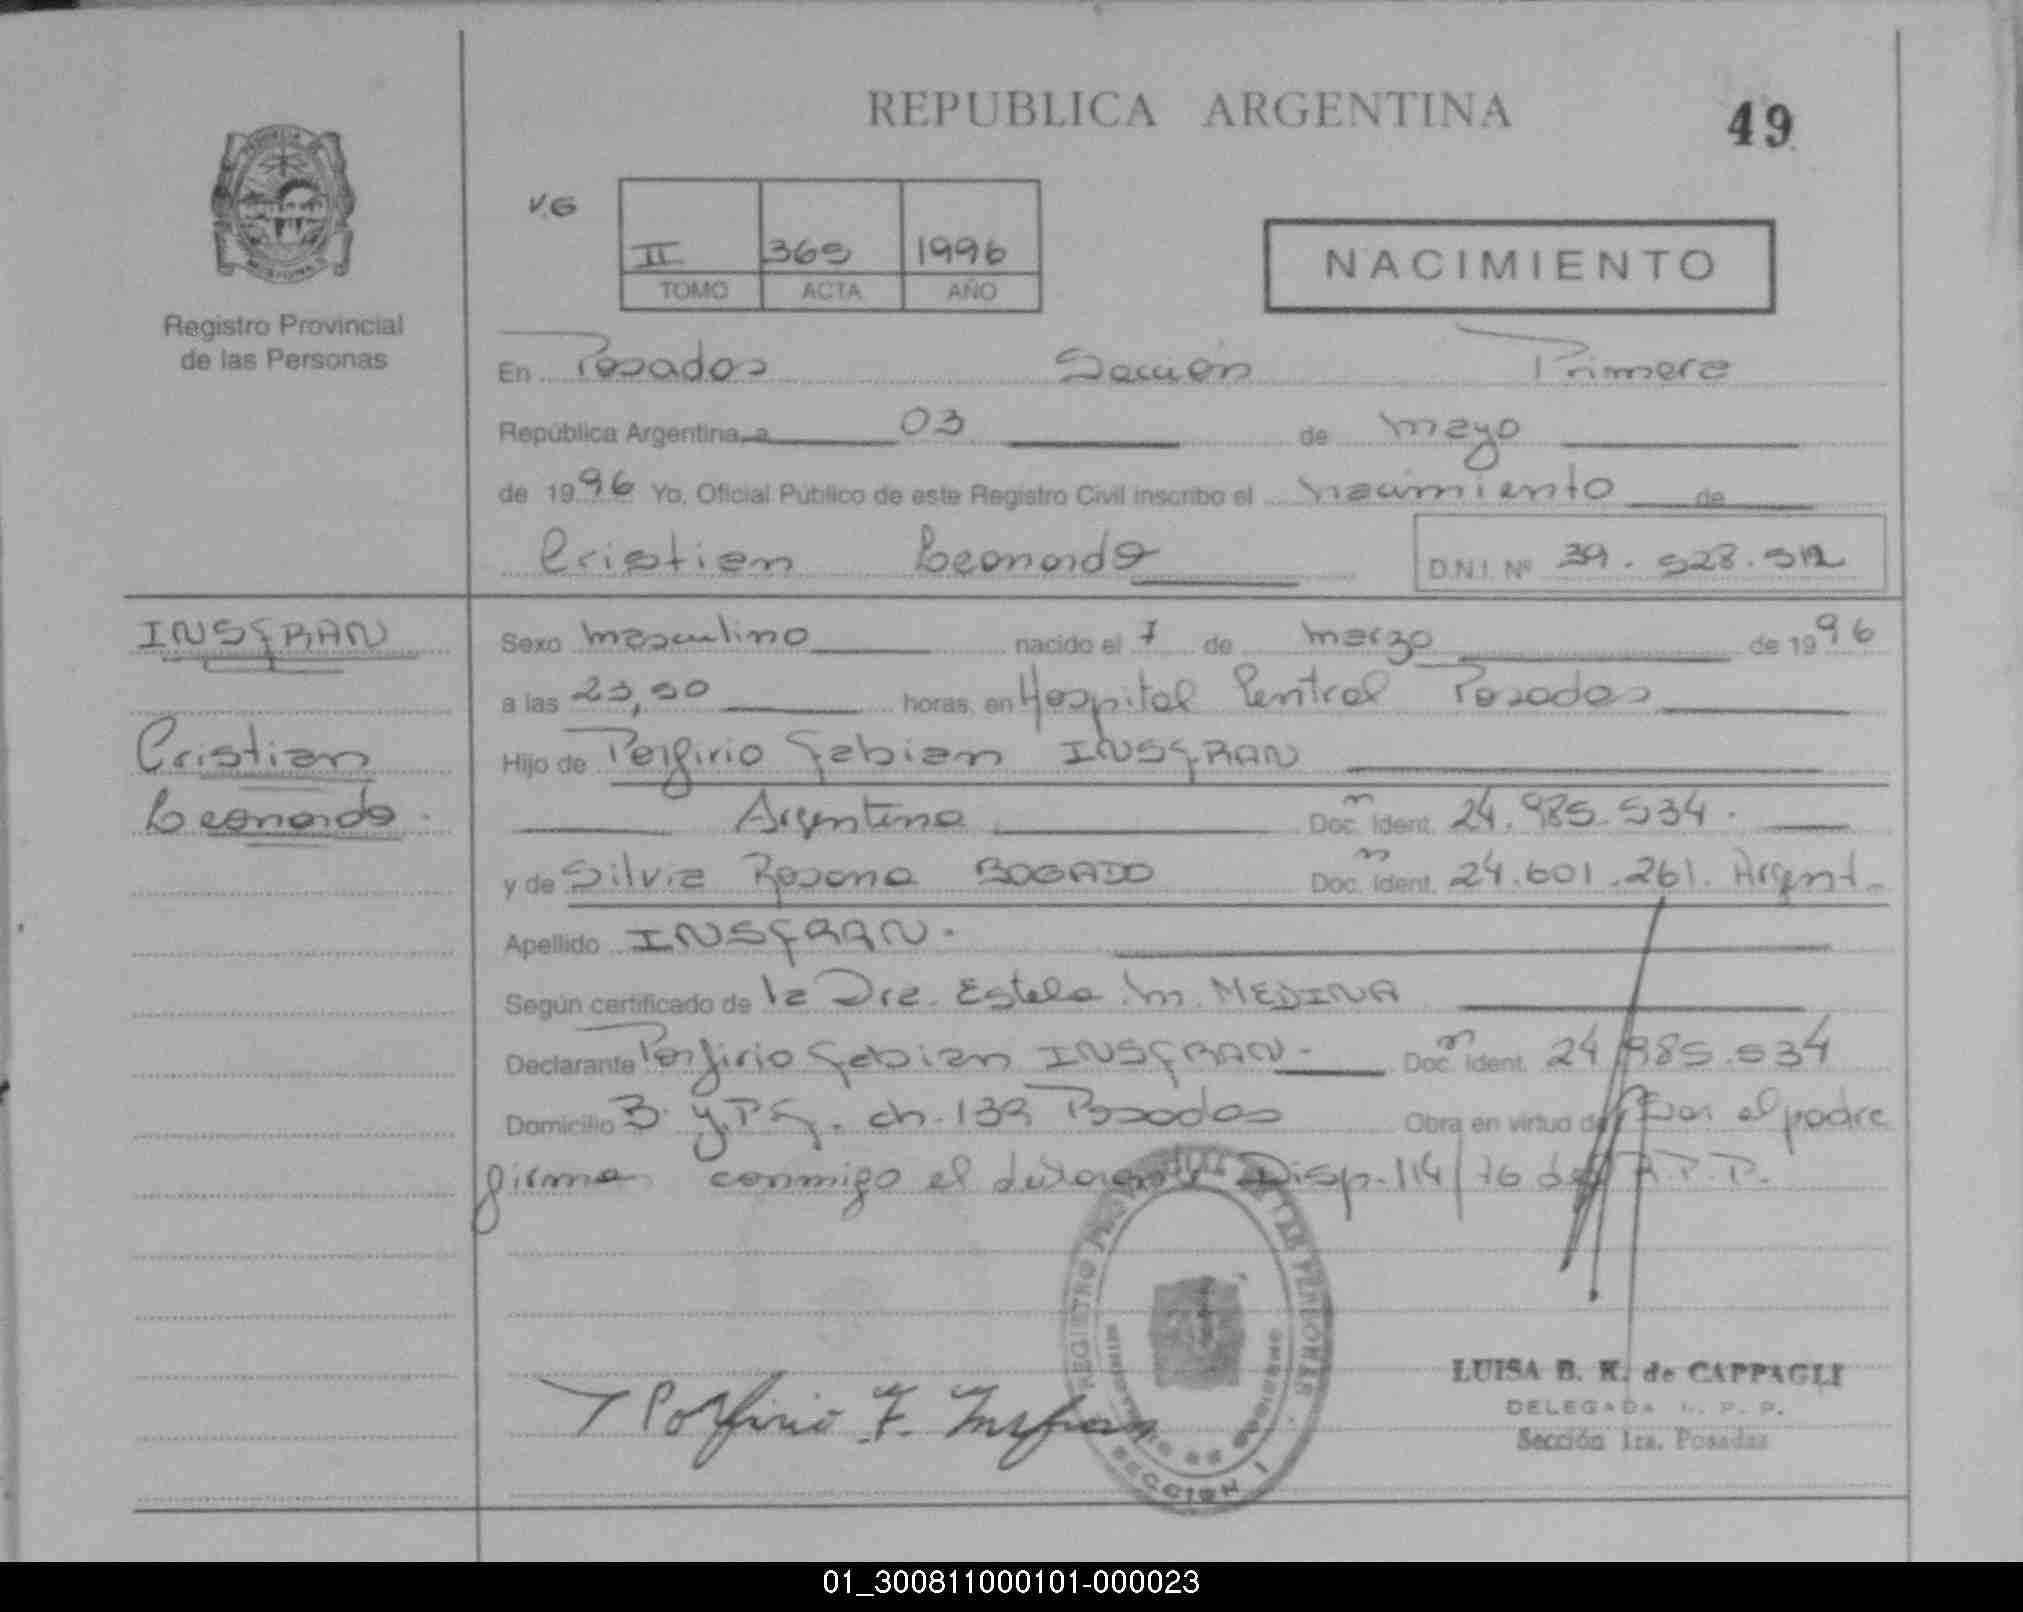 REPUBLICA ARGENTINA
49
V.G
II 365 1996
TOMO ACTA AÑO
NACIMIENTO
Registro Provincial
de las Personas
En Posadas Sección Primera
República Argentina, a 03 de mayo
de 1996 Yo, Oficial Público de este Registro Civil inscribo el nacimiento de
Cristian Leonardo
D.N.I. Nº 39.528.512
INSFRAN
Cristian
Leonardo.
Sexo masculino nacido el 7 de marzo de 1996
a las 23,50 horas, en Hospital Central Posadas
Hijo de Porfirio Fabian INSFRAN
Argentino Doc. Ident. 24.985.534.
y de Silvia Rosana BOGADO Doc. Ident. 24.601.261. Argent.
Apellido INSFRAN.
Según certificado de la Dra. Estela M. MEDINA
Declarante Porfirio Fabian INSFRAN- Doc. Ident. 24.985.534
Domicilio B. y.P.F. ch. 139 Posadas Obra en virtud de ser el padre
firma conmigo el declarante Disp. 114/76 del R.P.P.
Porfirio F. Insfran
REGISTRO PROVINCIAL DE LAS PERSONAS
SECCION I
LUISA B. K. de CAPPAGLI
DELEGADA R. P. P.
Sección 1ra. Posadas
01_300811000101-000023